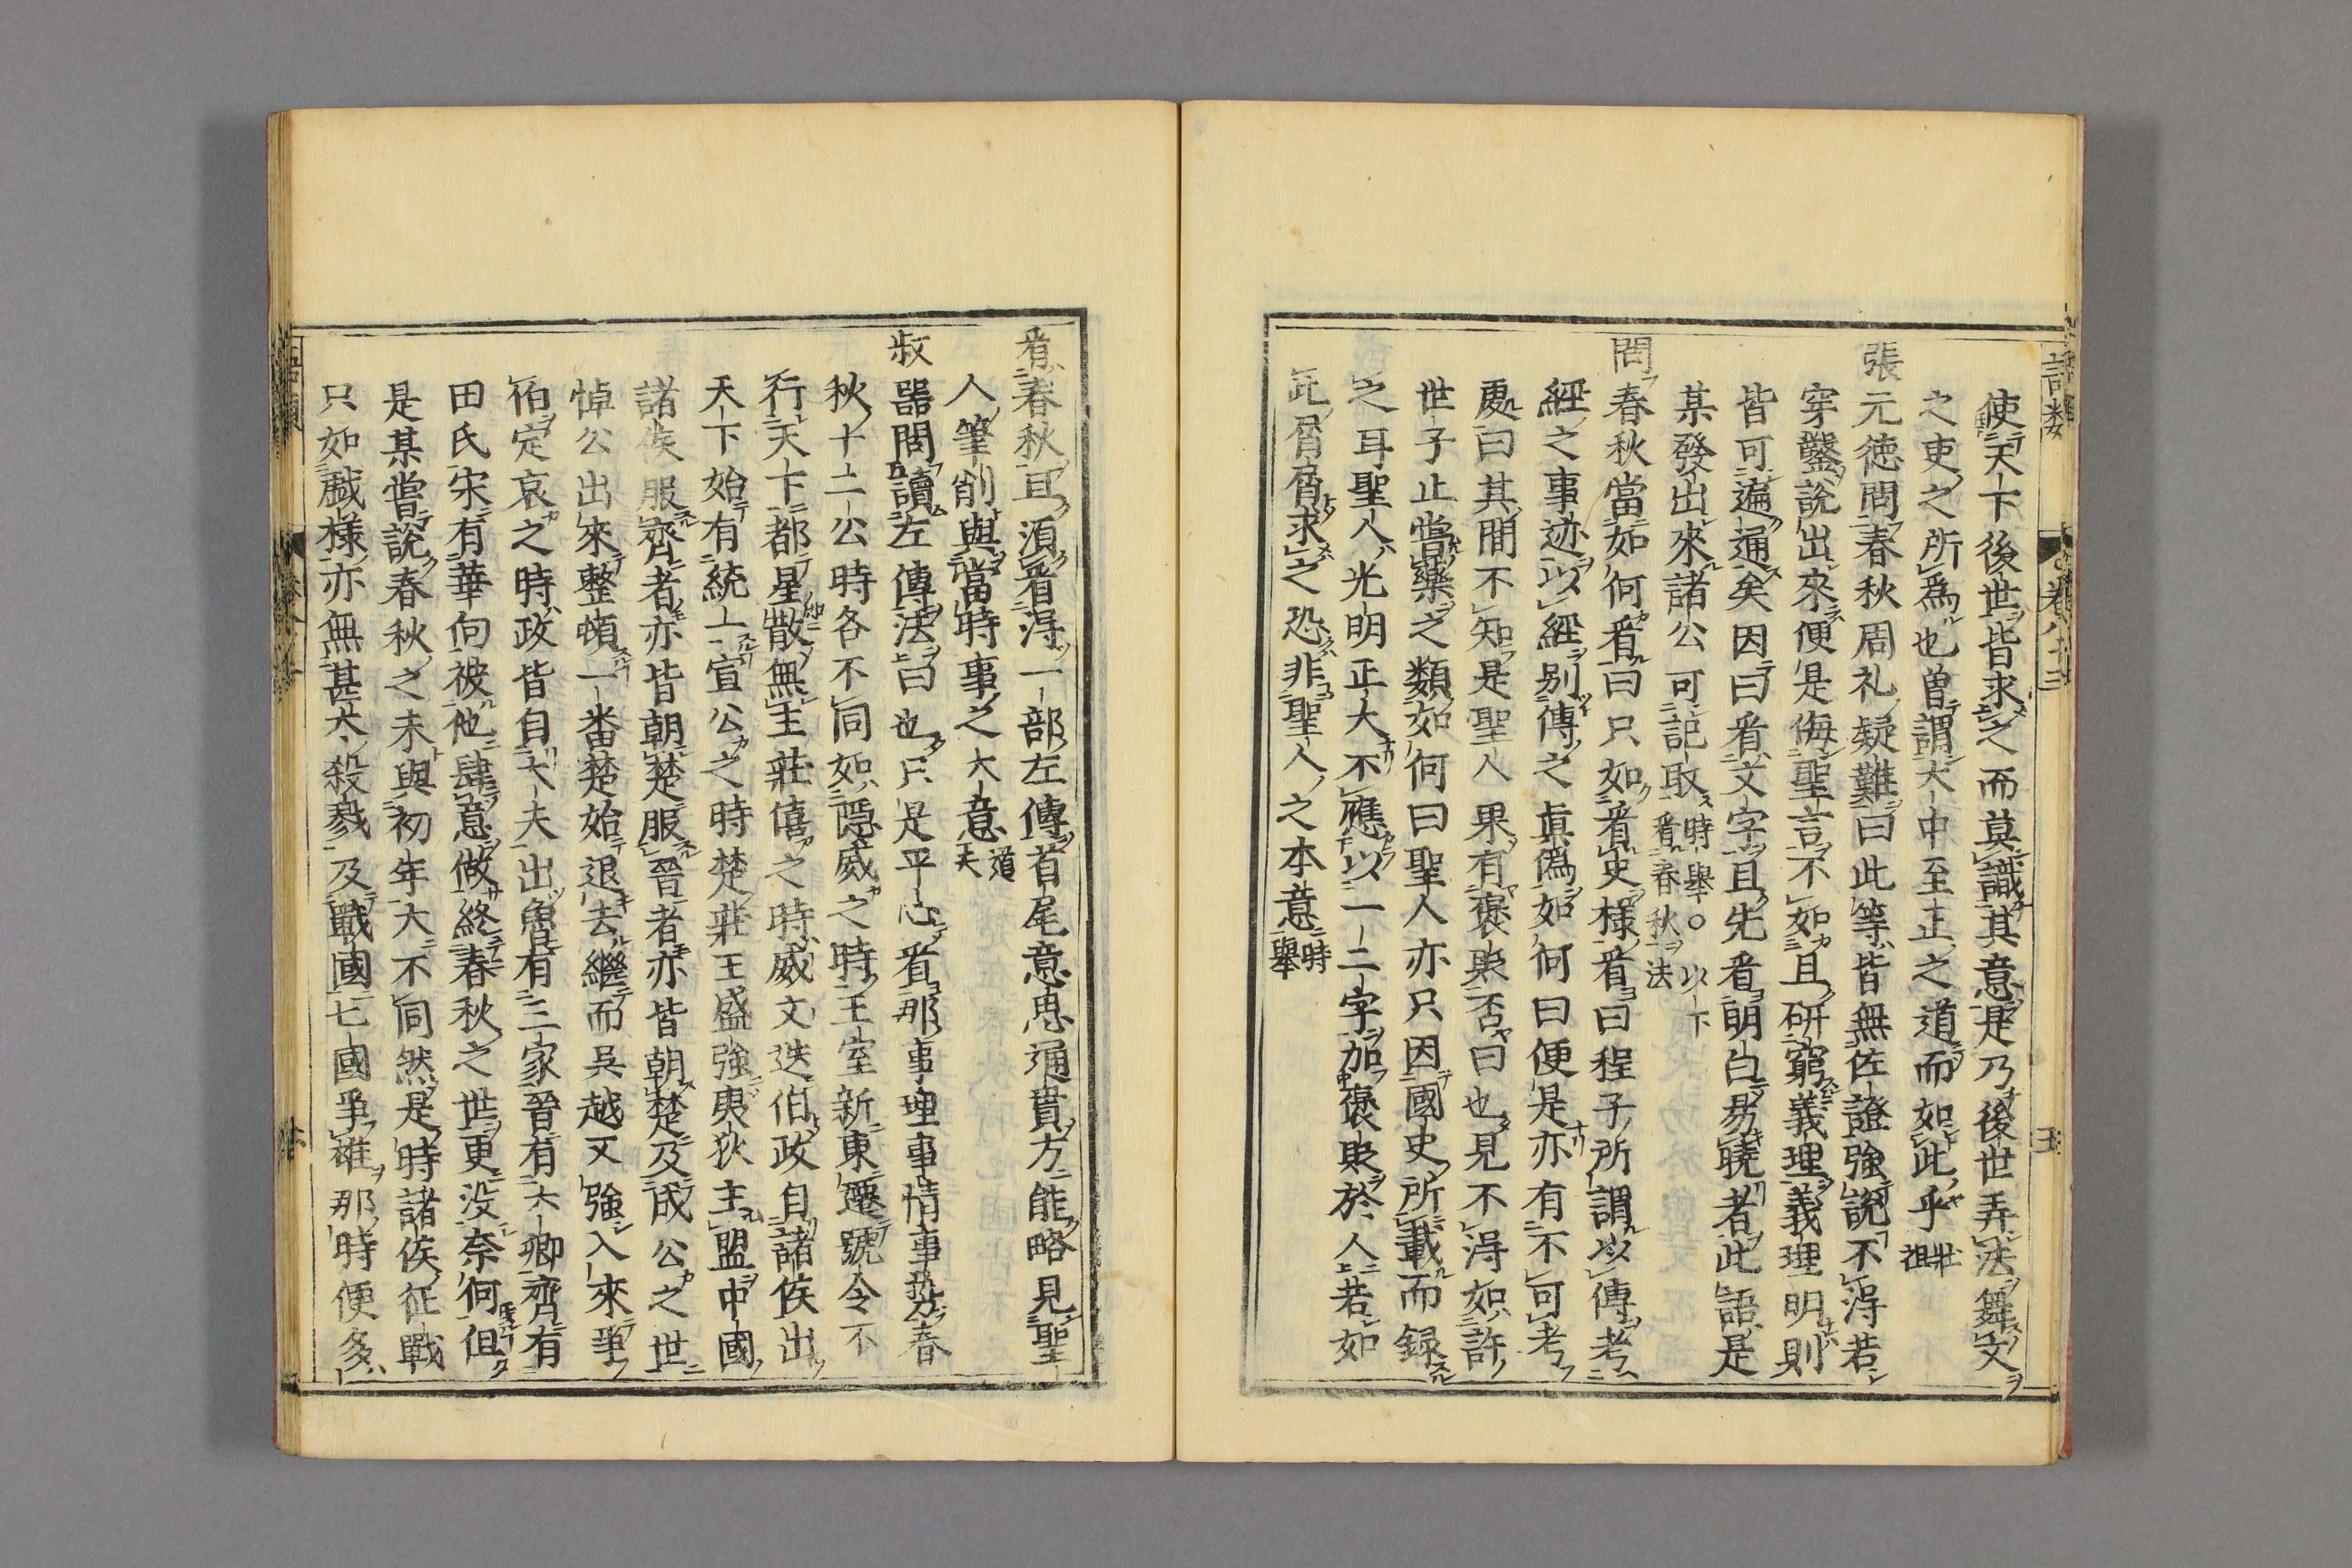 語類 卷八十三 五
使天下後世皆求之而莫識其意是乃後世弄法舞文
之吏之所爲也曽謂大中至正之道而如此乎壯祖
張元徳問春秋周礼疑難曰此等皆無佐證強說不得若
穿鑿說出來便是侮聖言不如且研窮義理義理明則
皆可遍通矣因曰看文字且先看明白易曉者此語是
某發出來諸公可記取時舉〇以下看春秋法
問春秋當如何看曰只如看史様看曰程子所謂以傳考
經之事迹以經别傳之眞僞如何曰便是亦有不可考
處曰其間不知是聖人果有襃貶否曰也見不得如許
世子止嘗藥之類如何曰聖人亦只因國史所載而録
之耳聖人光明正大不應以一二字加襃貶於人若如
此屑屑求之恐非聖人之本意時舉
看春秋且須看得一部左傳首尾意思通貫方能略見聖
人筆削與當時事之大意道夫
叔器問讀左傳法曰也只是平心看那事理事情事勢春
秋十二公時各不同如隱威之時王室新東遷號令不
行天下都星散無主莊僖之時威文迭伯政自諸侯出
天下始有統一宣公之時楚莊王盛強夷狄主盟中國
諸侯服齊者亦皆朝楚服晉者亦皆朝楚及成公之世
悼公出來整頓一番楚始退去繼而吳越又強入來爭
伯定哀之時政皆自大夫出魯有三家晉有六卿齊有
田氏宋有華向被他肆意做終春秋之世更没奈何但
是某嘗說春秋之末與初年大不同然是時諸侯征戰
只如戲樣亦無甚大殺戮及戰國七國爭雄那時便多